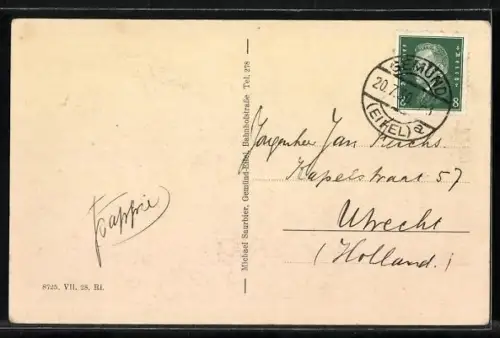 GEMÜND
20.7.30
(EIFEL) a
8 8
Jongenheer Jan Reichs.
Kapelstraat 57
Utrecht
(Holland.)
Pappie
Michael Saurbier, Gemünd-Eifel, Bahnhofstraße Tel. 278
8725, VII. 28. Ri.